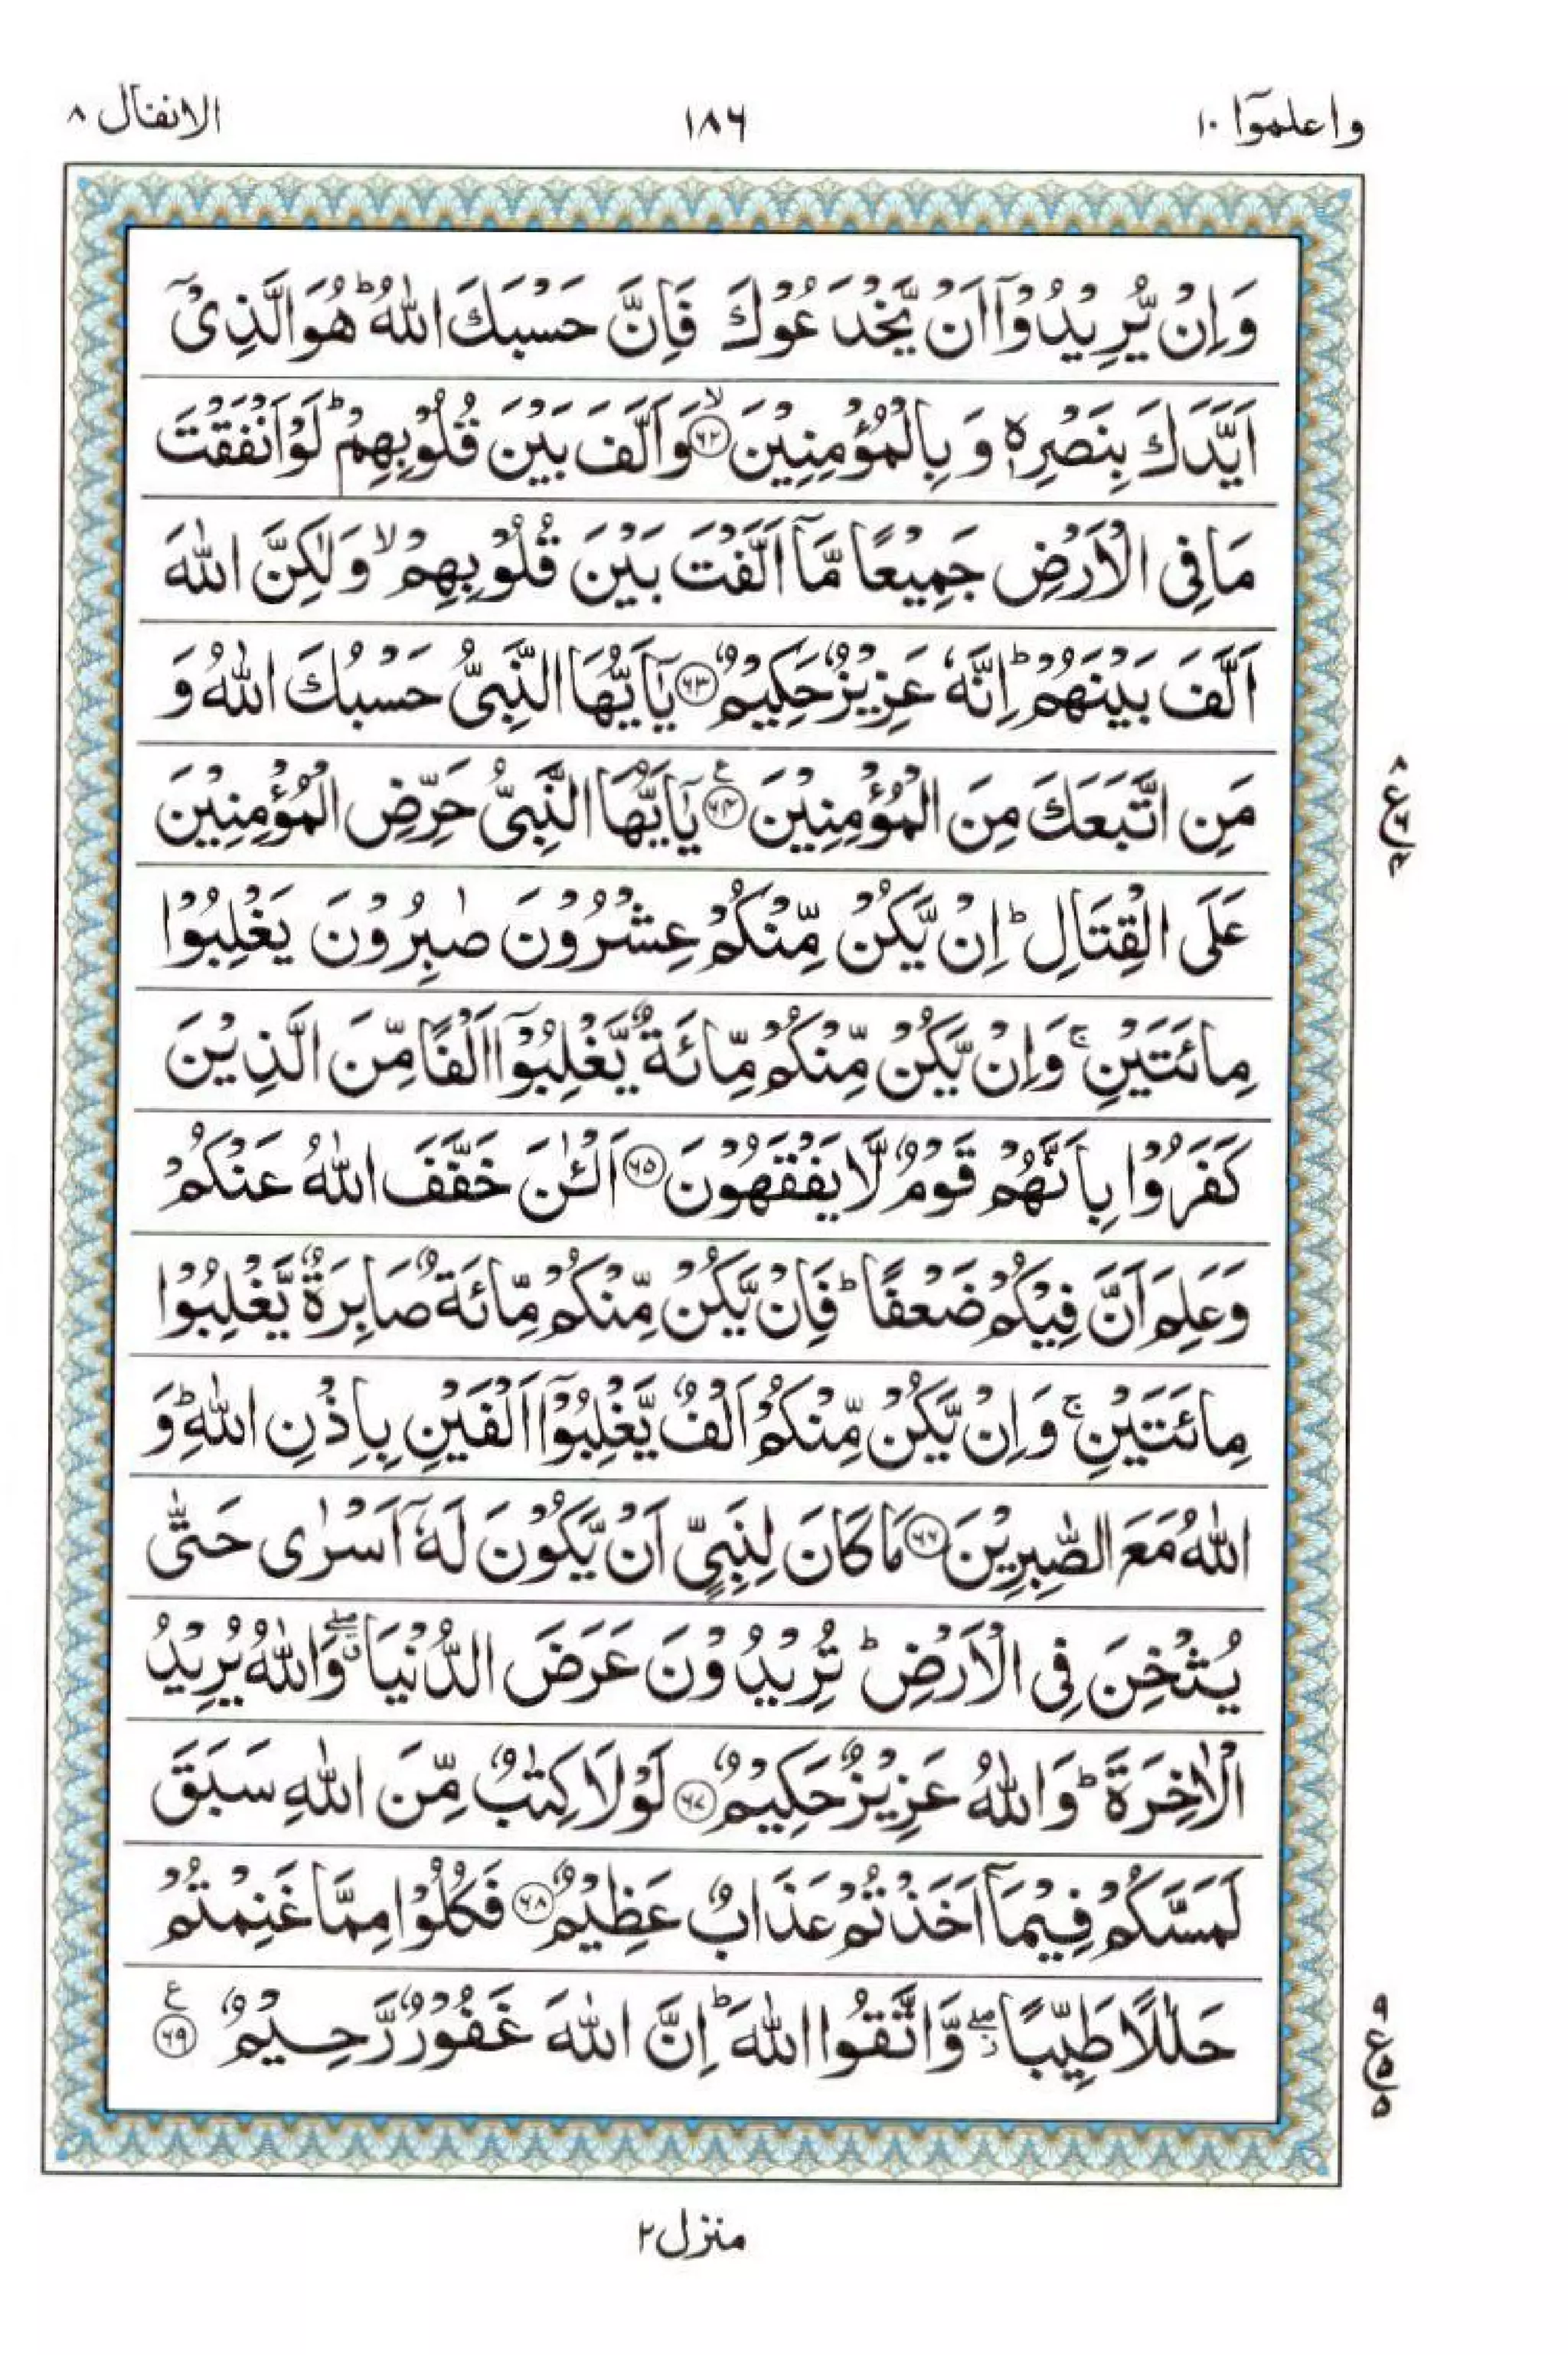 واعلموٓا ۱۰
۱۸۶
الانفال ۸
وَاِنْ يُّرِيْدُوْٓا اَنْ يَّخْدَعُوْكَ فَاِنَّ حَسْبَكَ اللّٰهُ ؕ هُوَ الَّذِیْۤ
اَيَّدَكَ بِنَصْرِهٖ وَ بِالْمُؤْمِنِيْنَ ۙ﴿۶۲﴾ وَاَلَّفَ بَيْنَ قُلُوْبِهِمْ ؕ لَوْ اَنْفَقْتَ
مَا فِی الْاَرْضِ جَمِيْعًا مَّاۤ اَلَّفْتَ بَيْنَ قُلُوْبِهِمْ ۙ وَلٰكِنَّ اللّٰهَ
اَلَّفَ بَيْنَهُمْ ؕ اِنَّهٗ عَزِيْزٌ حَكِيْمٌ ﴿۶۳﴾ يٰۤاَيُّهَا النَّبِیُّ حَسْبُكَ اللّٰهُ وَ
مَنِ اتَّبَعَكَ مِنَ الْمُؤْمِنِيْنَ ﴿۶۴﴾ع يٰۤاَيُّهَا النَّبِیُّ حَرِّضِ الْمُؤْمِنِيْنَ
عَلَی الْقِتَالِ ؕ اِنْ يَّكُنْ مِّنْكُمْ عِشْرُوْنَ صٰبِرُوْنَ يَغْلِبُوْا
مِائَتَيْنِ ۚ وَاِنْ يَّكُنْ مِّنْكُمْ مِّائَةٌ يَّغْلِبُوْۤا اَلْفًا مِّنَ الَّذِيْنَ
كَفَرُوْا بِاَنَّهُمْ قَوْمٌ لَّا يَفْقَهُوْنَ ﴿۶۵﴾ اَلْـٰٔنَ خَفَّفَ اللّٰهُ عَنْكُمْ
وَعَلِمَ اَنَّ فِيْكُمْ ضَعْفًا ؕ فَاِنْ يَّكُنْ مِّنْكُمْ مِّائَةٌ صَابِرَةٌ يَّغْلِبُوْا
مِائَتَيْنِ ۚ وَاِنْ يَّكُنْ مِّنْكُمْ اَلْفٌ يَّغْلِبُوْۤا اَلْفَيْنِ بِاِذْنِ اللّٰهِ ؕ وَ
اللّٰهُ مَعَ الصّٰبِرِيْنَ ﴿۶۶﴾ مَا كَانَ لِنَبِیٍّ اَنْ يَّكُوْنَ لَهٗۤ اَسْرٰی حَتّٰی
يُثْخِنَ فِی الْاَرْضِ ؕ تُرِيْدُوْنَ عَرَضَ الدُّنْيَا ۖ وَاللّٰهُ يُرِيْدُ
الْاٰخِرَةَ ؕ وَاللّٰهُ عَزِيْزٌ حَكِيْمٌ ﴿۶۷﴾ لَوْلَا كِتٰبٌ مِّنَ اللّٰهِ سَبَقَ
لَمَسَّكُمْ فِيْمَاۤ اَخَذْتُمْ عَذَابٌ عَظِيْمٌ ﴿۶۸﴾ فَكُلُوْا مِمَّا غَنِمْتُمْ
حَلٰلًا طَيِّبًا ۖ وَّاتَّقُوا اللّٰهَ ؕ اِنَّ اللّٰهَ غَفُوْرٌ رَّحِيْمٌ ﴿۶۹﴾ع
۸ ع ۶ ۴
۹ ع ۵ ۵
منزل ۲